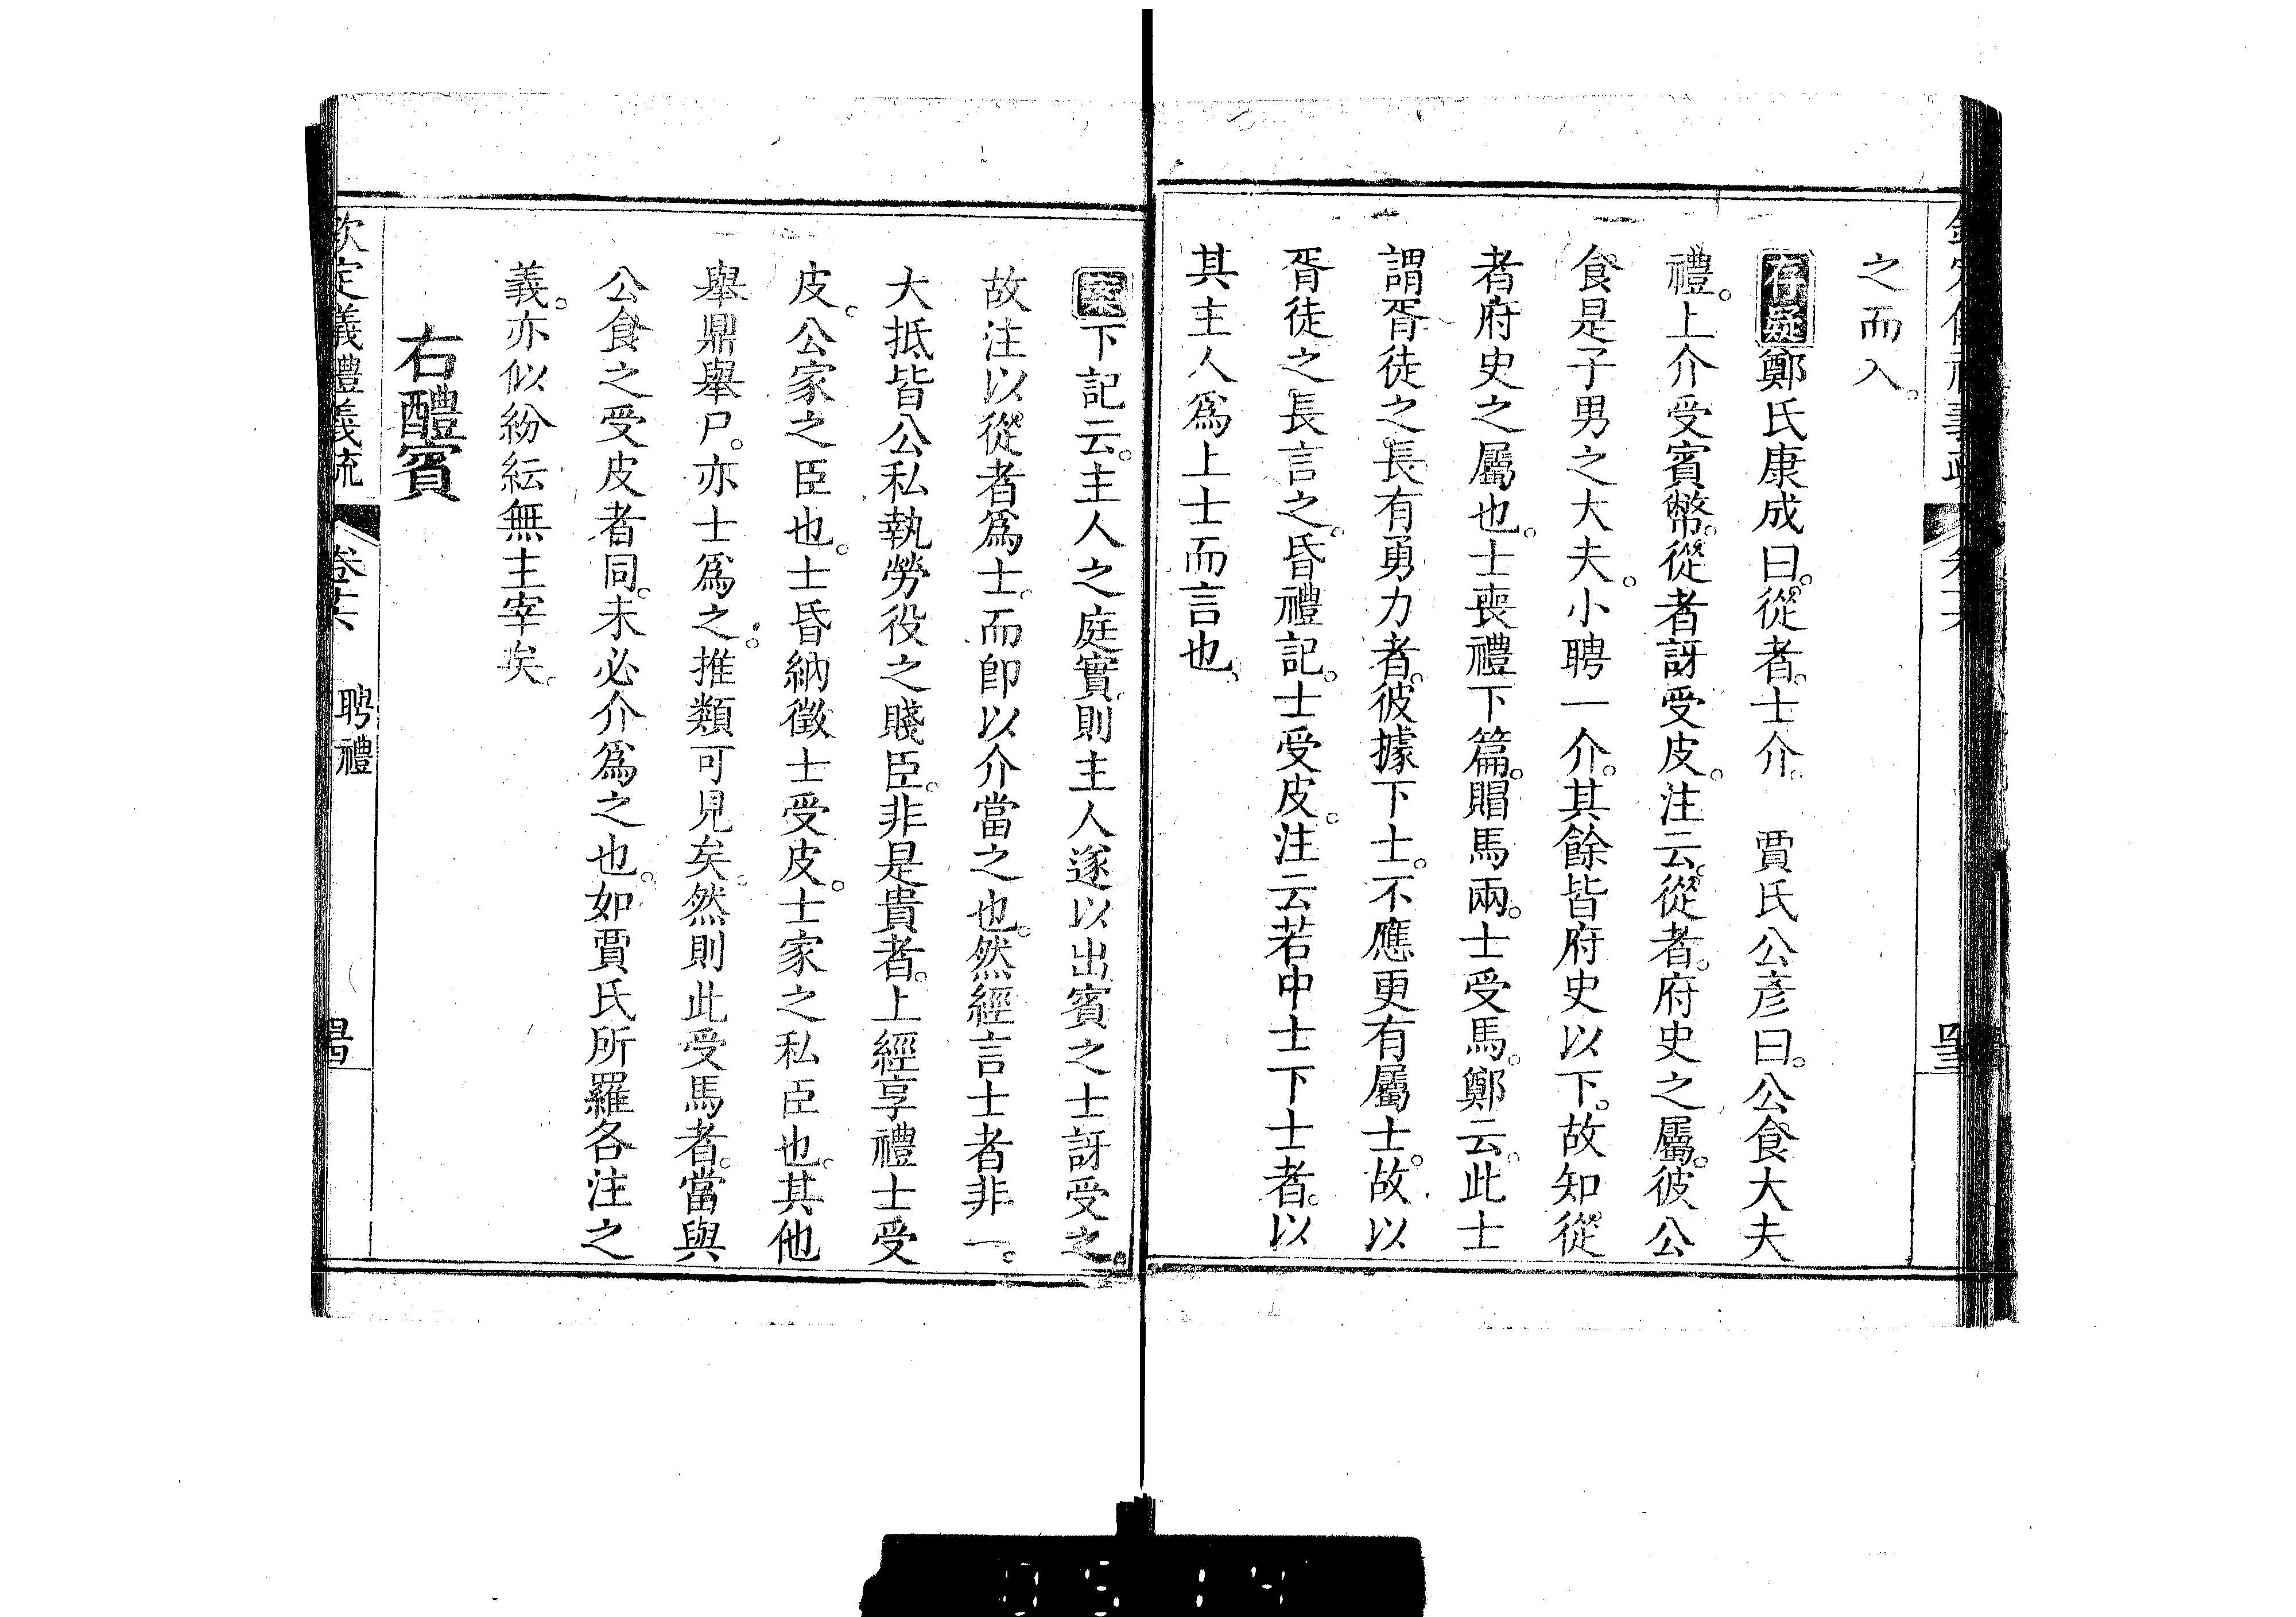 之而入。
存疑鄭氏康成曰。從者。士介。 賈氏公彥曰。公食大夫
禮。上介受賓幣。從者訝受皮。注云。從者。府史之屬。彼公
食是子男之大夫。小聘一介。其餘皆府史以下。故知從
者府史之屬也。士喪禮下篇。賵馬兩。士受馬。鄭云。此士
謂胥徒之長有勇力者。彼據下士。不應更有屬士。故以
胥徒之長言之。昏禮記。士受皮。注云若中士下士者。以
其主人爲上士而言也。
案下記云。主人之庭實。則主人遂以出賓之士訝受之。
故注以從者爲士。而即以介當之也。然經言士者非一。
大抵皆公私執勞役之賤臣。非是貴者。上經享禮士受
皮。公家之臣也。士昏納徵士受皮。士家之私臣也。其他
舉鼎舉尸。亦士爲之。推類可見矣。然則此受馬者。當與
公食之受皮者同。未必介爲之也。如賈氏所羅各注之
義。亦似紛紜無主宰矣。
右醴賓
欽定義禮義疏 卷十六 聘禮